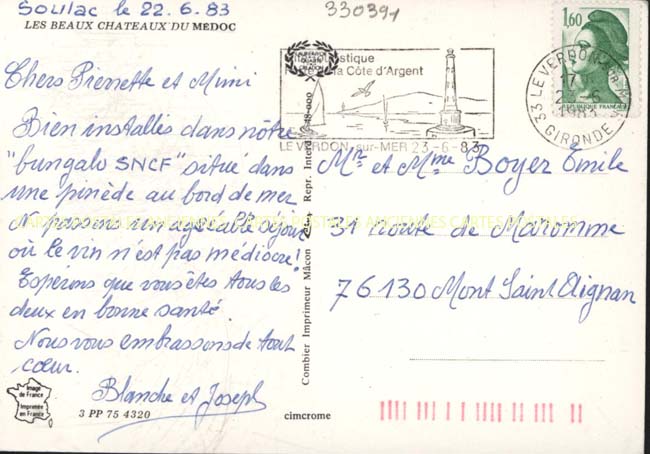 Soulac le 22.6.83
330391
LES BEAUX CHATEAUX DU MEDOC
Chers Pierrette et Mimi
Bien installés dans nôtre
"bungalo SNCF" situé dans
une pinède au bord de mer
N passons un agréable séjour
où le vin n'est pas médiocre!
Espérons que vous êtes tous les
deux en bonne santé.
Nous vous embrassons de tout
cœur.
Blanche et Joseph
Image
de France
Imprimée
en France
3 PP 75 4320
Combier Imprimeur Mâcon
Repr. Interd.
cimcrome
la Côte d'Argent
LE VERDON-sur-MER 23-6-83
1,60
REPUBLIQUE FRANÇAISE
33 LE VERDON
17
23-6
1983
GIRONDE
Mr et Mme Boyer Emile
31 route de Maromme
76130 Mont Saint Aignan